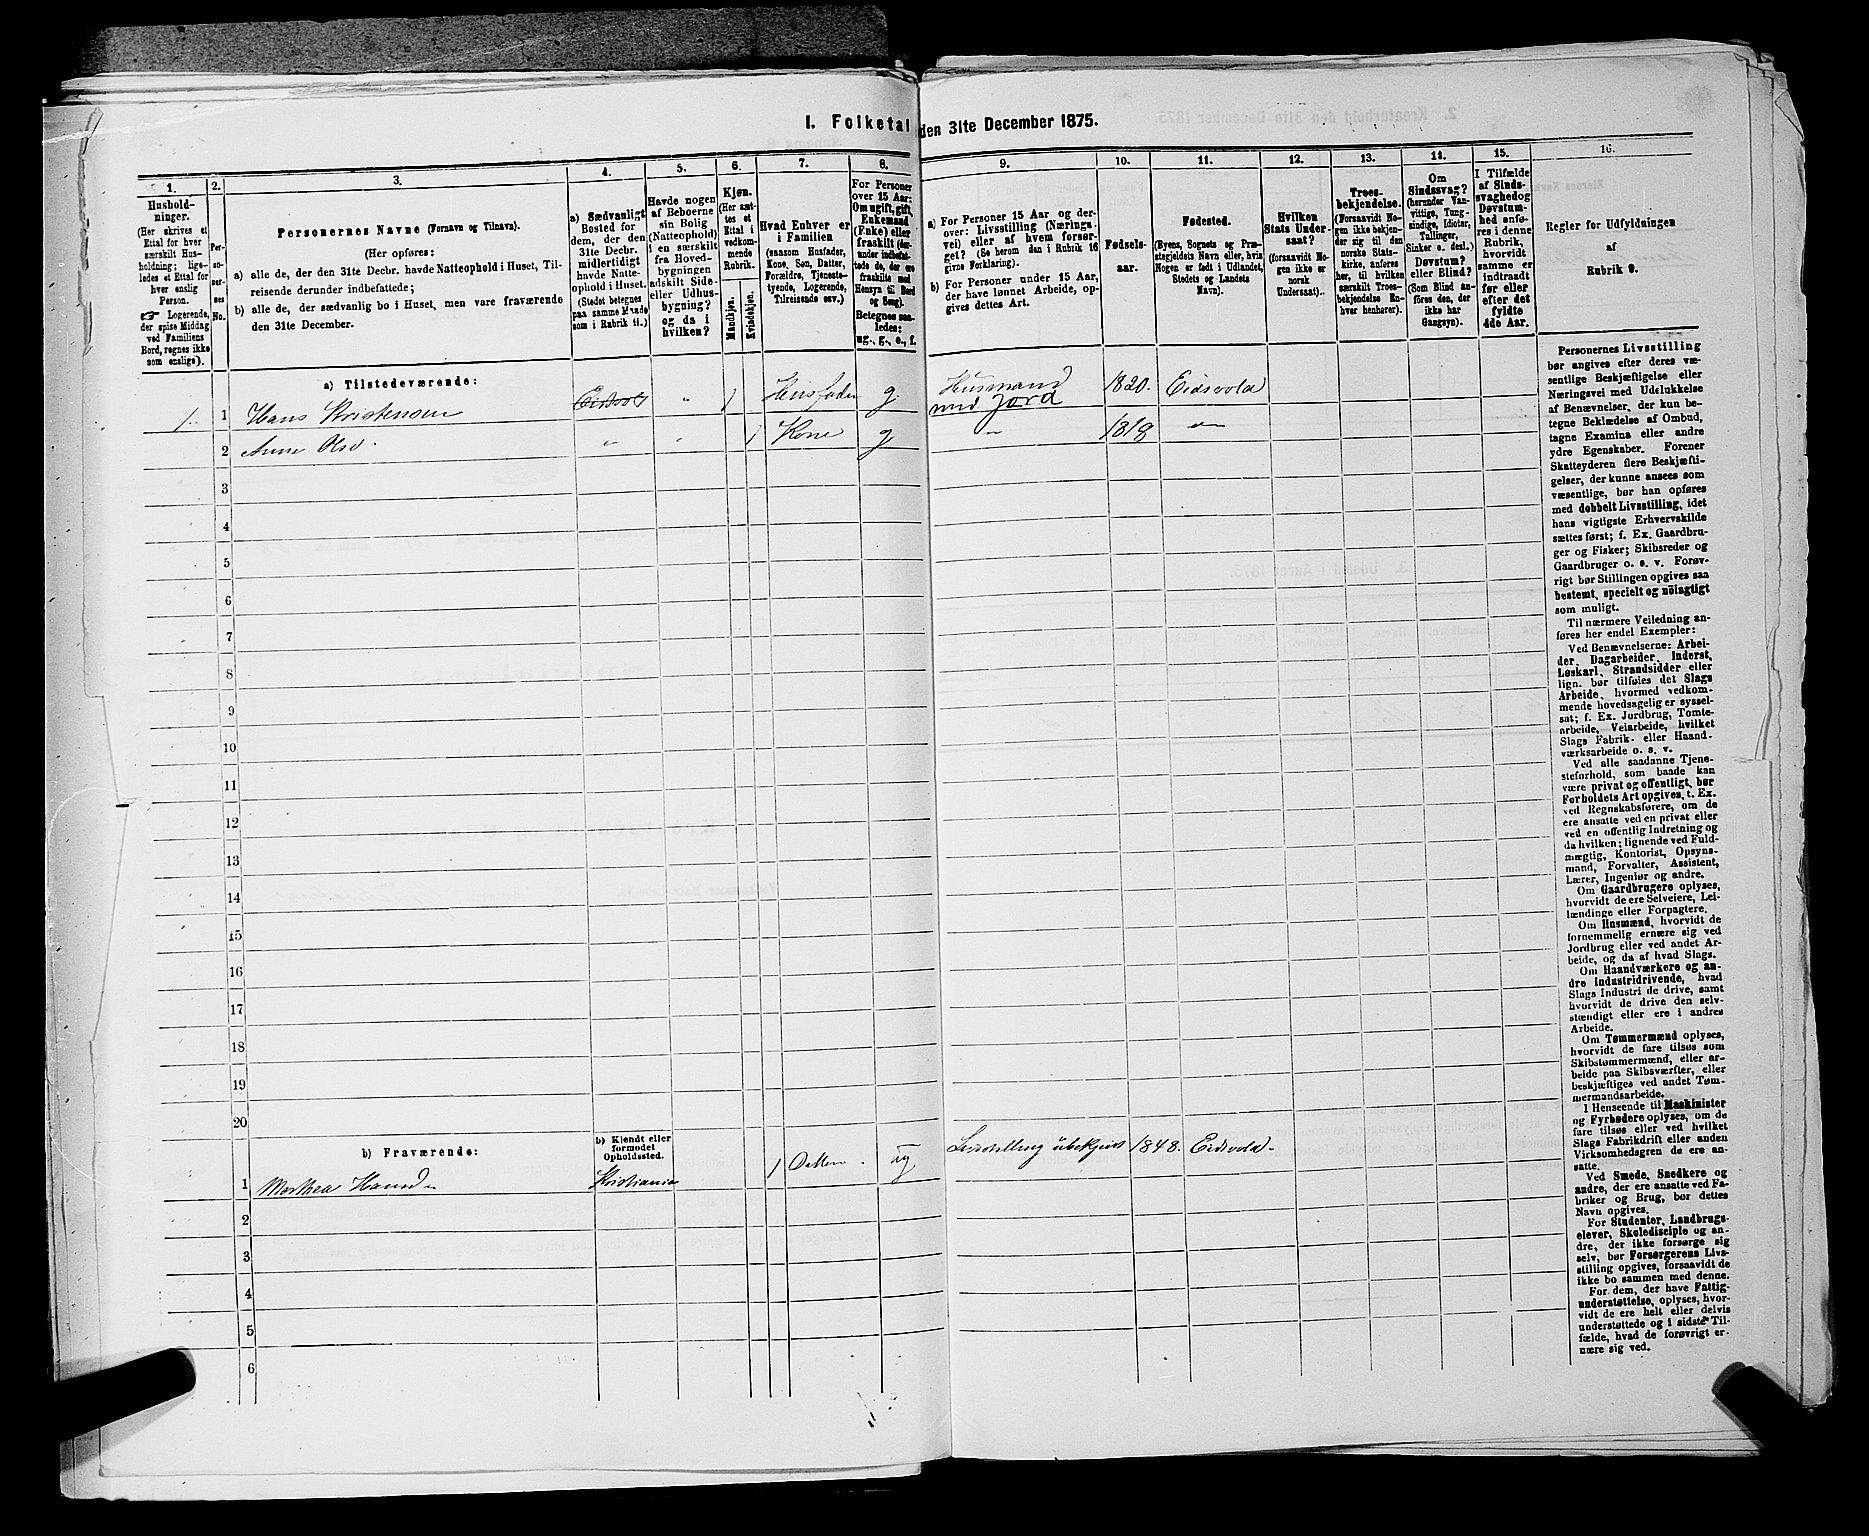 I. Folketal den 31te December 1875.
1.
2.
3.
4.
5.
6.
7.
8.
9.
10.
11.
12.
13.
14.
15.
16.
Hushold-
ninger.
(Her skrives et
Ettal for hver
særskilt Hus-
holdning; lige-
ledes et Ettal for
hver enslig
Person.
☞ Logerende,
der spise Middag
ved Familiens
Bord, regnes ikke
som enslige).
Per-
so-
ner-
nes
No.
Personernes Navne (Fornavn og Tilnavn).
(Her opføres:
a) alle de, der den 31te Decbr. havde Natteophold i Huset, Til-
reisende derunder indbefattede;
b) alle de, der sædvanlig bo i Huset, men vare fraværende
den 31te December.
a) Sædvanligt
Bosted for
dem, der den
31te Decbr.
midlertidigt
havde Natte-
ophold i Huset.
(Stedet betegnes
paa samme Maade
som i Rubrik 11.)
Havde nogen
af Beboerne
sin Bolig
(Natteophold)
i en særskilt
fra Hoved-
bygningen
adskilt Side-
eller Udhus-
bygning?
og da i
hvilken?
Kjøn.
(Her sæt-
tes et
Ettal i
vedkom-
mende
Rubrik.
Mandkjøn.
Kvindekjøn.
Hvad Enhver er
i Familien
(saasom Husfader,
Kone, Søn, Datter,
Forældre, Tjeneste-
tyende, Logerende,
Tilreisende osv.)
For Personer
over 15 Aar:
Om ugift, gift,
Enkemand
(Enke) eller
fraskilt (der-
under indbefat-
tede de, der ere
fraskilte med
Hensyn til Bord
og Seng).
Betegnes saa-
ledes:
ug., g., e., f.
a) For Personer 15 Aar og der-
over: Livsstilling (Nærings-
vei) eller af hvem forsør-
get? (Se herom den i Rubrik 16
givne Forklaring).
b) For Personer under 15 Aar,
der have lønnet Arbeide, op-
gives dettes Art.
Fødsels-
aar.
Fødested.
(Byens, Sognets og Præ-
stegjeldets Navn eller, hvis
Nogen er født i Udlandet,
Stedets og Landets
Navn).
Hvilken
Stats Under-
saat?
(forsaavidt No-
gen ikke er
norsk
Undersaat).
Troes-
bekjendelse.
(Forsaavidt No-
gen ikke bekjen-
der sig til den
norske Stats-
kirke, anføres
her, til hvilken
særskilt Troes-
bekjendelse En-
hver henhører).
Om
Sindssvag?
(herunder Van-
vittige, Tung-
sindige, Idioter,
Tullinger,
Sinker o. desl.)
Døvstum?
eller Blind?
(Som Blind an-
føres den, der
ikke har
Gangsyn).
I Tilfælde
af Sinds-
svaghed og
Døvstum-
hed anfø-
res i denne
Rubrik,
hvorvidt
samme er
indtraadt
før eller
efter det
fyldte
4de Aar.
Regler for Udfyldningen
af
Rubrik 9.
a) Tilstedeværende:
1. 1 Hans Kristensen Eidsvold " 1 Husfader g. Husmand med Jord 1820. Eidsvold
2 Anne Olsd. " " 1 Kone g " 1818 "
3
4
5
6
7
8
9
10
11
12
13
14
15
16
17
18
19
20
b) Fraværende:
b) Kjendt eller
formodet
Opholdssted.
1 Marthea Hansd. Kristiania 1 Datter. ug Livsstilling ubekjendt 1848. Eidsvold.
2
3
4
5
6
Personernes Livsstilling
bør angives efter deres væ-
sentlige Beskjæftigelse eller
Næringsvei med Udelukkelse
af Benævnelser, der kun be-
tegne Beklædelse af Ombud,
tagne Examina eller andre
ydre Egenskaber. Forener
Skatteyderen flere Beskjæfti-
gelser, der kunne ansees som
væsentlige, bør han opføres
med dobbelt Livsstilling, idet
hans vigtigste Erhvervskilde
sættes først; f. Ex. Gaardbru-
ger og Fisker; Skibsreder og
Gaardbruger o. s. v. Forøv-
rigt bør Stillingen opgives saa
bestemt, specielt og nöiagtigt
som muligt.
Til nærmere Veiledning an-
føres her endel Exempler:
Ved Benævnelserne: Arbei-
der, Dagarbeider, Inderst,
Løskarl, Strandsidder eller
lign. bør tilføies det Slags
Arbeide, hvormed vedkom-
mende hovedsagelig er syssel-
sat; f. Ex. Jordbrug, Tomte-
arbeide, Veiarbeide, hvilket
Slags Fabrik- eller Haand-
værksarbeide o. s. v.
Ved alle saadanne Tjene-
steforhold, som baade kan
være privat og offentligt, bør
Forholdets Art opgives, t. Ex.
ved Regnskabsførere, om de
ere ansatte ved en privat eller
ved en offentlig Indretning og
da hvilken; lignende ved Fuld-
mægtig, Kontorist, Opsyns-
mand, Forvalter, Assistent,
Lærer, Ingeniør og andre.
Om Gaardbrugere oplyses,
hvorvidt de ere Selveiere, Lei-
lændinge eller Forpagtere.
Om Husmænd, hvorvidt de
fornemmelig ernære sig ved
Jordbrug eller ved andet Ar-
beide, og da af hvad Slags.
Om Haandværkere og an-
dre Industridrivende, hvad
Slags Industri de drive, samt
hvorvidt de drive den selv-
stændigt eller ere i andres
Arbeide.
Om Tømmermænd oplyses,
hvorvidt de fare tilsøs som
Skibstømmermænd, eller ar-
beide paa Skibsværfter, eller
beskjæftiges ved andet Tøm-
mermandsarbeide.
I Henseende til Maskinister
og Fyrbødere oplyses, om de
fare tilsøs eller ved hvilket
Slags Fabrikdrift eller anden
Virksomhedsgren de ere an-
satte.
Ved Smede, Snedkere og
andre, der ere ansatte ved Fa-
briker og Brug, bør dettes
Navn opgives.
For Studenter, Landbrugs-
elever, Skoledisciple og an-
dre, der ikke forsørge sig
selv, bør Forsørgerens Livs-
stilling opgives, forsaavidt de
ikke bo sammen med denne.
For dem, der have Fattig-
understøttelse, oplyses, hvor-
vidt de ere helt eller delvis
understøttede og i sidste Til-
fælde, hvad de forøvrigt er-
nære sig ved.